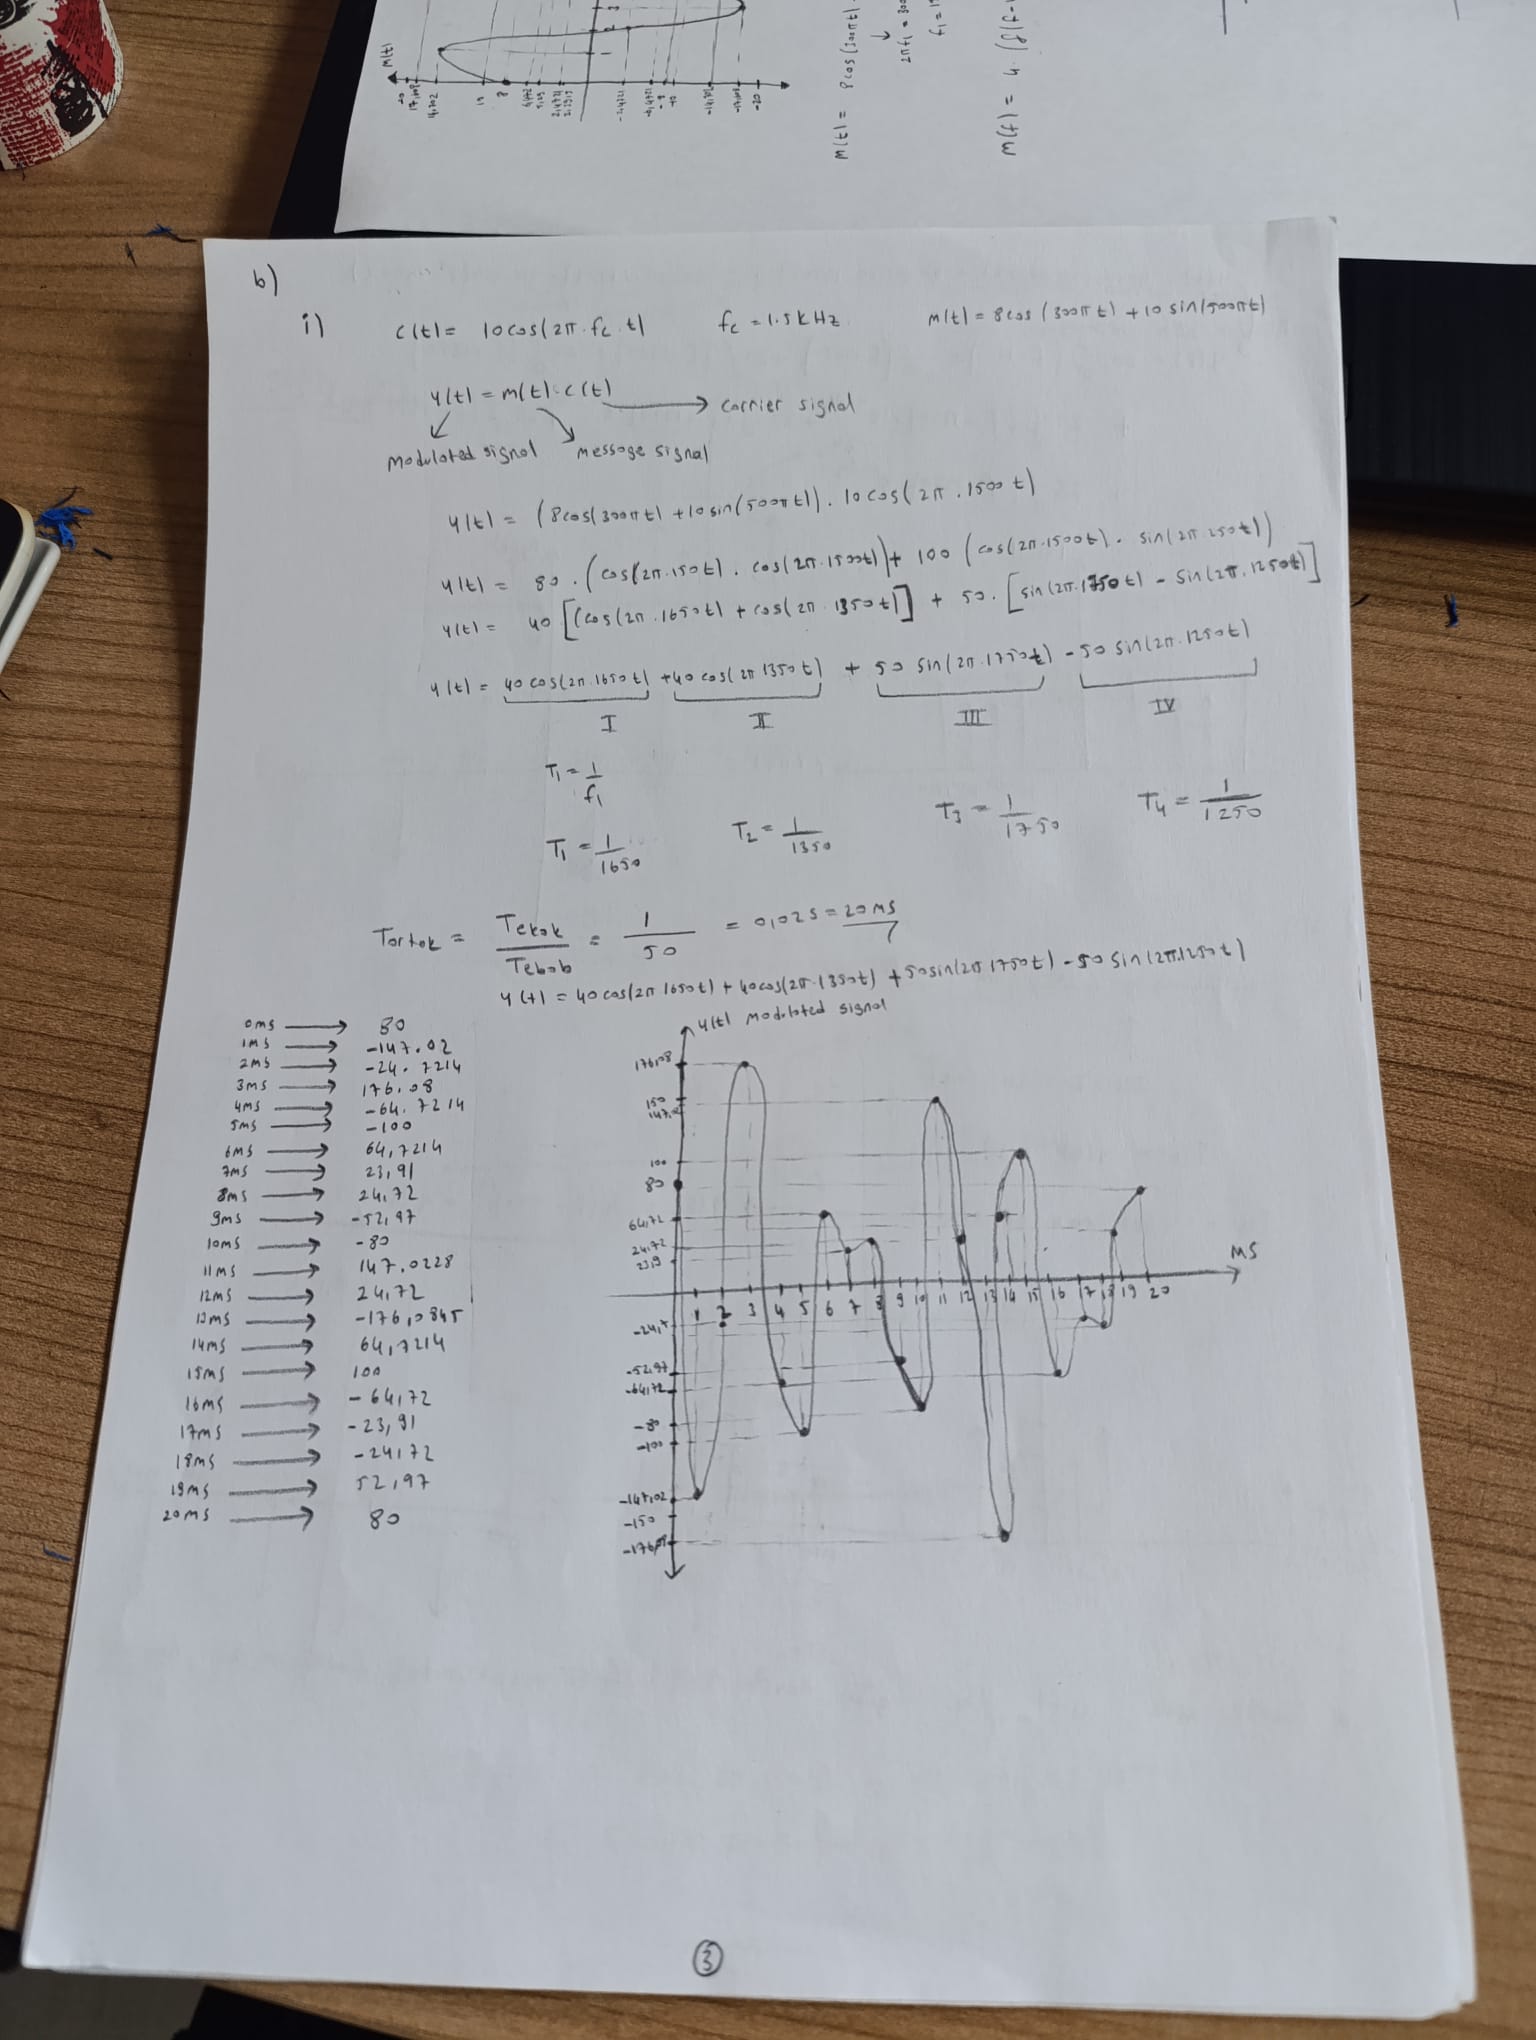 M(t)
8
-20
M(t) = 8cos(300πt)
M(f) = 4.
b)
i) c(t) = 10cos(2π.fc.t) fc = 1.5kHz m(t) = 8cos(300πt) + 10sin(500πt)
y(t) = m(t).c(t) → carrier signal
modulated signal message signal
y(t) = (8cos(300πt) + 10sin(500πt)). 10cos(2π.1500t)
y(t) = 80.(cos(2π.150t).cos(2π.1500t)) + 100(cos(2π.1500t).sin(2π.250t))
y(t) = 40[(cos(2π.1650t) + cos(2π.1350t)] + 50.[sin(2π.1750t) - sin(2π.1250t)]
y(t) = 40cos(2π.1650t) + 40cos(2π1350t) + 50 sin(2π.1750t) - 50 sin(2π.1250t)
I II III IV
T1 = 1/f1
T1 = 1/1650 T2 = 1/1350 T3 = 1/1750 T4 = 1/1250
Tortak = Tekok/Tebob = 1/50 = 0,02s = 20ms
y(t) = 40cos(2π1650t) + 40cos(2π.1350t) + 50sin(2π1750t) - 50 sin(2π.1250t)
0ms → 80
1ms → -147.02
2ms → -24.7214
3ms → 176.08
4ms → -64.7214
5ms → -100
6ms → 64,7214
7ms → 23,91
8ms → 24,72
9ms → -52,97
10ms → -80
11ms → 147.0228
12ms → 24,72
13ms → -176,0845
14ms → 64,7214
15ms → 100
16ms → -64,72
17ms → -23,91
18ms → -24,72
19ms → 52,97
20ms → 80
y(t) modulated signal
176,08
150
147,02
100
80
64,72
24,72
23,9
ms
1 2 3 4 5 6 7 8 9 10 11 12 13 14 15 16 17 18 19 20
-24,7
-52,97
-64,72
-80
-100
-147,02
-150
-176,08
3